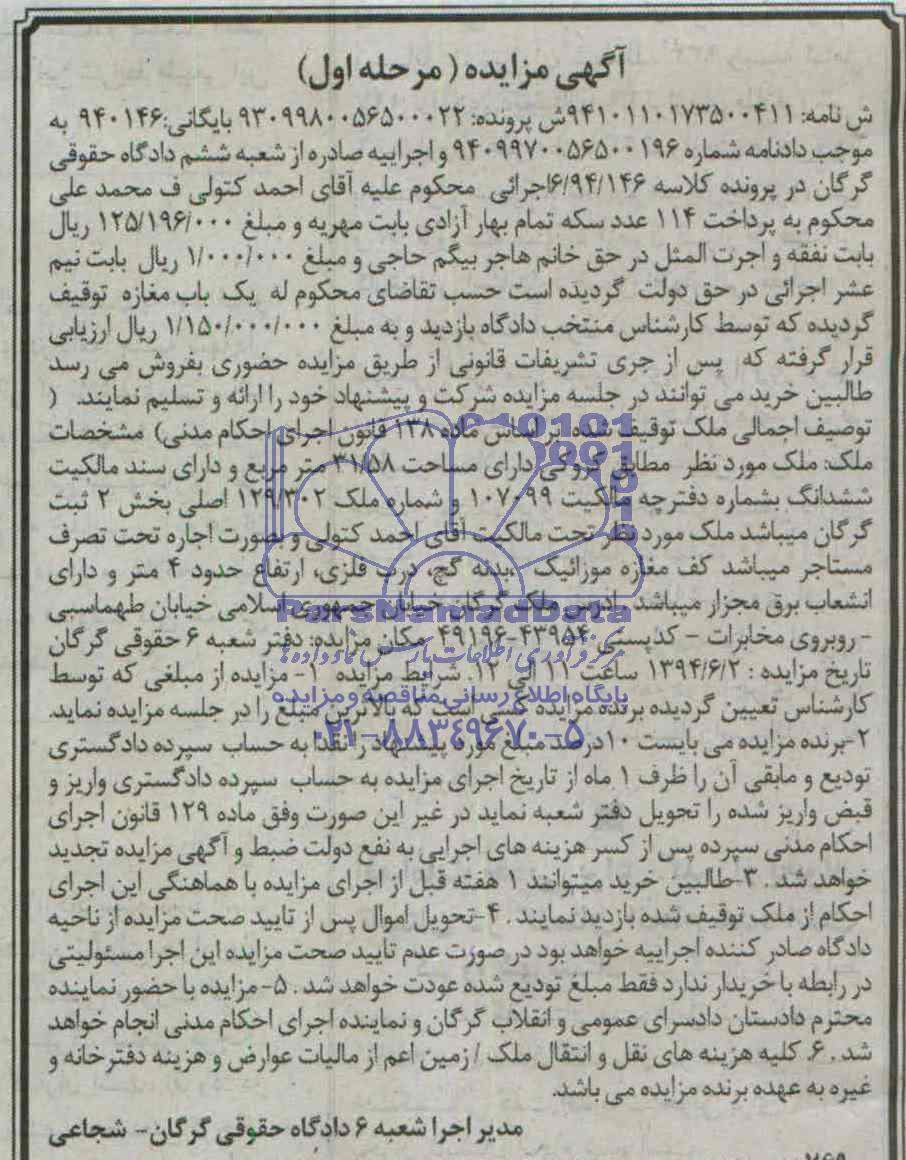 آگهی مزایده ( مرحله اول)
ش نامه: ۹۴۱۰۱۱۰۱۷۳۵۰۰۴۱۱ش پرونده: ۹۳۰۹۹۸۰۰۵۶۵۰۰۰۲۲ بایگانی:۹۴۰۱۴۶ به
موجب دادنامه شماره ۹۴۰۹۹۷۰۰۵۶۵۰۰۱۹۶ و اجراییه صادره از شعبه ششم دادگاه حقوقی
گرگان در پرونده کلاسه ۶/۹۴/۱۴۶اجرائی محکوم علیه آقای احمد کتولی ف محمد علی
محکوم به پرداخت ۱۱۴ عدد سکه تمام بهار آزادی بابت مهریه و مبلغ ۱۲۵/۱۹۶/۰۰۰ ریال
بابت نفقه و اجرت المثل در حق خانم هاجر بیگم حاجی و مبلغ ۱/۰۰۰/۰۰۰ ریال بابت نیم
عشر اجرائی در حق دولت گردیده است حسب تقاضای محکوم له یک باب مغازه توقیف
گردیده که توسط کارشناس منتخب دادگاه بازدید و به مبلغ ۱/۱۵۰/۰۰۰/۰۰۰ ریال ارزیابی
قرار گرفته که پس از جری تشریفات قانونی از طریق مزایده حضوری بفروش می رسد
طالبین خرید می توانند در جلسه مزایده شرکت و پیشنهاد خود را ارائه و تسلیم نمایند. (
توصیف اجمالی ملک توقیف شده بر اساس ماده ۱۳۸ قانون اجرای احکام مدنی) مشخصات
ملک: ملک مورد نظر مطابق کروکی دارای مساحت ۳۱/۵۸ متر مربع و دارای سند مالکیت
ششدانگ بشماره دفترچه مالکیت ۱۰۷۰۹۹ و شماره ملک ۱۲۹/۳۰۲ اصلی بخش ۲ ثبت
گرگان میباشد ملک مورد نظر تحت مالکیت آقای احمد کتولی و بصورت اجاره تحت تصرف
مستاجر میباشد کف مغازه موزائیک ،بدنه گچ، درب فلزی، ارتفاع حدود ۴ متر و دارای
انشعاب برق مجزار میباشد . ادرس ملک گرگان خیابان جمهوری اسلامی خیابان طهماسبی
- روبروی مخابرات - کدپستی ۴۳۹۵۴-۴۹۱۹۶ مکان مزایده: دفتر شعبه ۶ حقوقی گرگان
تاریخ مزایده : ۱۳۹۴/۶/۲ ساعت ۱۱ الی ۱۲. شرایط مزایده ۱- مزایده از مبلغی که توسط
کارشناس تعیین گردیده برنده مزایده کسی است که بالاترین مبلغ را در جلسه مزایده نماید.
۲-برنده مزایده می بایست ۱۰درصد مبلغ مورد پیشنهاد را نقدا به حساب سپرده دادگستری
تودیع و مابقی آن را ظرف ۱ ماه از تاریخ اجرای مزایده به حساب سپرده دادگستری واریز و
قبض واریز شده را تحویل دفتر شعبه نماید در غیر این صورت وفق ماده ۱۲۹ قانون اجرای
احکام مدنی سپرده پس از کسر هزینه های اجرایی به نفع دولت ضبط و آگهی مزایده تجدید
خواهد شد . ۳-طالبین خرید میتوانند ۱ هفته قبل از اجرای مزایده با هماهنگی این اجرای
احکام از ملک توقیف شده بازدید نمایند . ۴-تحویل اموال پس از تایید صحت مزایده از ناحیه
دادگاه صادر کننده اجراییه خواهد بود در صورت عدم تایید صحت مزایده این اجرا مسئولیتی
در رابطه با خریدار ندارد فقط مبلغ تودیع شده عودت خواهد شد . ۵- مزایده با حضور نماینده
محترم دادستان دادسرای عمومی و انقلاب گرگان و نماینده اجرای احکام مدنی انجام خواهد
شد . ۶. کلیه هزینه های نقل و انتقال ملک / زمین اعم از مالیات عوارض و هزینه دفتر خانه و
غیره به عهده برنده مزایده می باشد.
مدیر اجرا شعبه ۶ دادگاه حقوقی گرگان- شجاعی
ParsNamadData
پایگاه اطلاع رسانی مناقصه و مزایده
۰۲۱-۸۸۳۴۹۶۷۰-۵